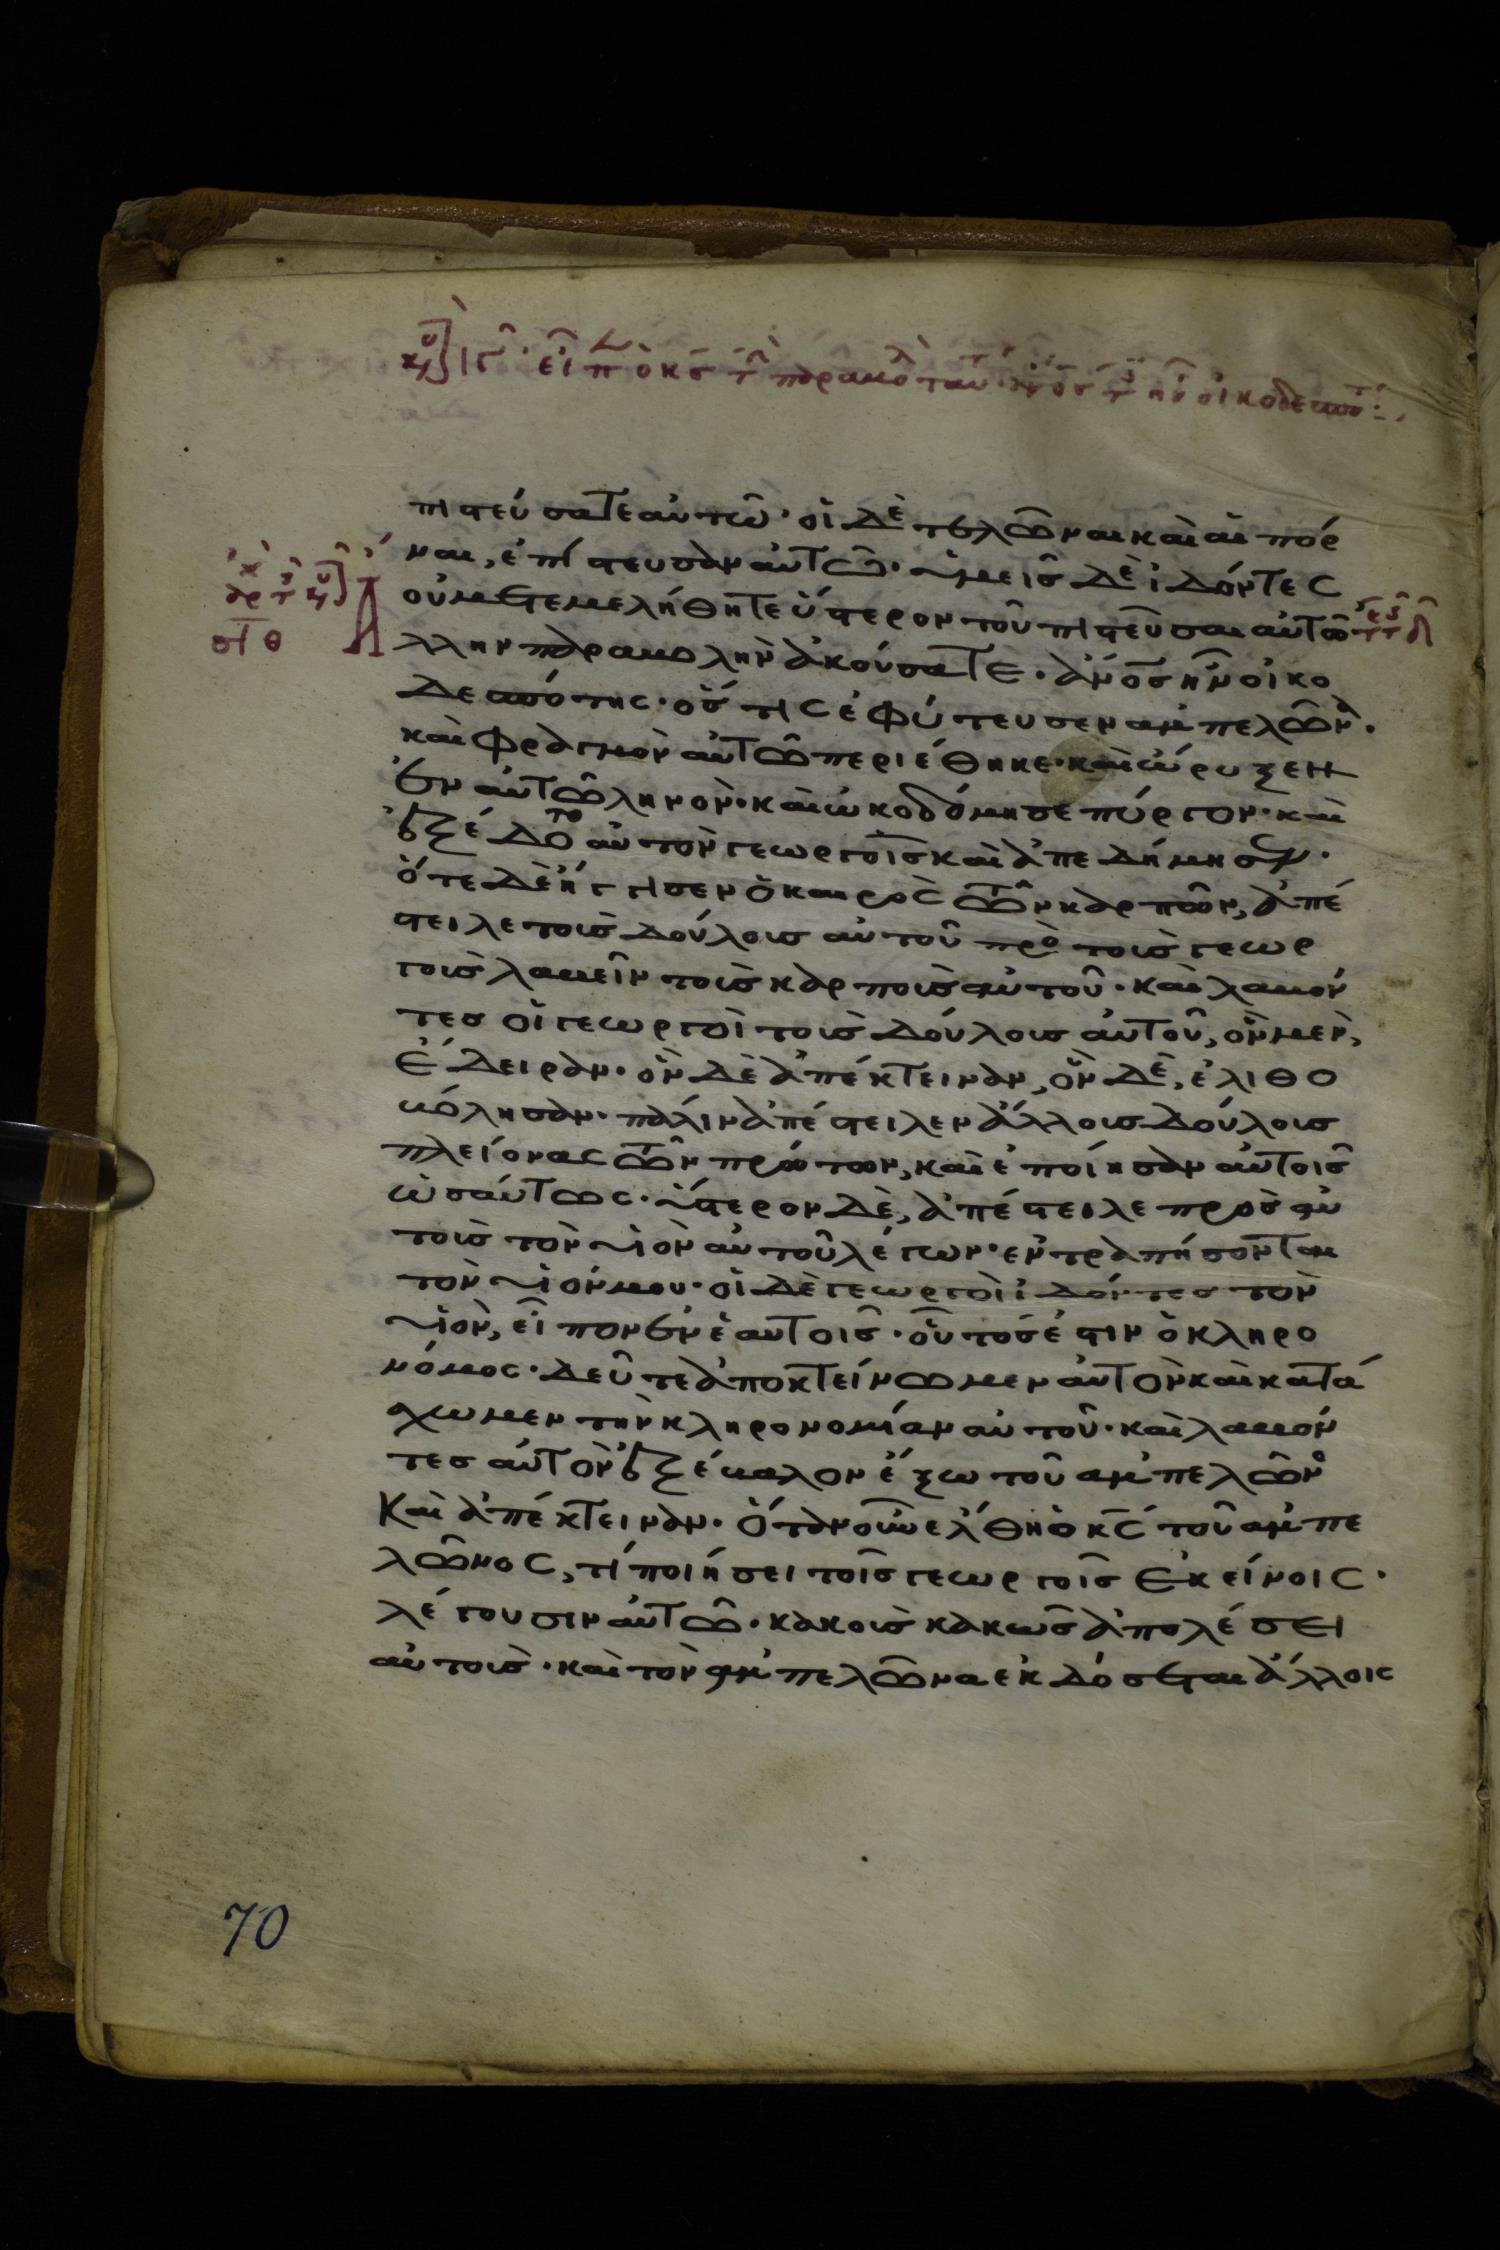 κυ ιγ· εἶπ ὁ κσ τ παραβο ταυ· ανοσ τ ην οἰκοδεσπό
πιστεύσατε αὐτῶ· οἱ δὲ τελῶναι καὶ αἱ πόρ
ναι, ἐπίστευσαν αὐτῶ· ὑμεῖς δὲ ἰδόντες
οὐ μετεμελήθητε ὕστερον τοῦ πιστεῦσαι αὐτῶ
Ἄλλην παραβολὴν ἀκούσατε· ἄνοσ ἦν οἰκο
δεσπότης· ὅστις ἐφύτευσεν ἀμπελῶν·
καὶ φραγμὸν αὐτῶ περιέθηκε· καὶ ὤρυξεν
ἐν αὐτῶ ληνόν· καὶ ὠκοδόμησε πύργον· καὶ
ἐξέδοτο αὐτὸν γεωργοῖς καὶ ἀπεδήμησεν·
ὅτε δὲ ἤγγισεν ὁ καιρὸς τῶν καρπῶν, ἀπέ
στειλε τοὺς δούλους αὐτοῦ πρὸ τοὺς γεωρ
γοὺς λαβεῖν τοὺς καρποὺς αὐτοῦ· καὶ λαβόν
τες οἱ γεωργοὶ τοὺς δούλους αὐτοῦ, ὃν μὲν,
ἔδειραν· ὃν δὲ ἀπέκτειναν, ὃν δὲ, ἐλιθο
βόλησαν· πάλιν ἀπέστειλεν ἄλλους δούλους
πλείονας τῶν πρώτων, καὶ ἐποίησαν αὐτοῖς
ὡσαύτως· ὕστερον δὲ, ἀπέστειλε πρὸς αὐ
τοὺς τὸν υἱὸν αὐτοῦ λέγων· ἐντραπήσονται
τὸν υἱόν μου· οἱ δὲ γεωργοὶ ἰδόντες τὸν
υἱὸν, εἶπον ἐν ἑαυτοῖς· οὗτός ἐστιν ὁ κληρο
νόμος· δεῦτε ἀποκτείνωμεν αὐτὸν καὶ κατά
σχωμεν τὴν κληρονομίαν αὐτοῦ· καὶ λαβόν
τες αὐτὸν ἐξέβαλον ἔξω τοῦ ἀμπελῶν
Καὶ ἀπέκτειναν· Ὅταν οὖν ἔλθη ὁ κς τοῦ ἀμπε
λῶνος, τί ποιήσει τοῖς γεωργοῖς ἐκείνοις·
λέγουσιν αὐτῶ· κακοὺς κακῶς ἀπολέσει
αὐτοὺς· καὶ τὸν ἀμπελῶνα ἐκδόσεται ἄλλοις
70